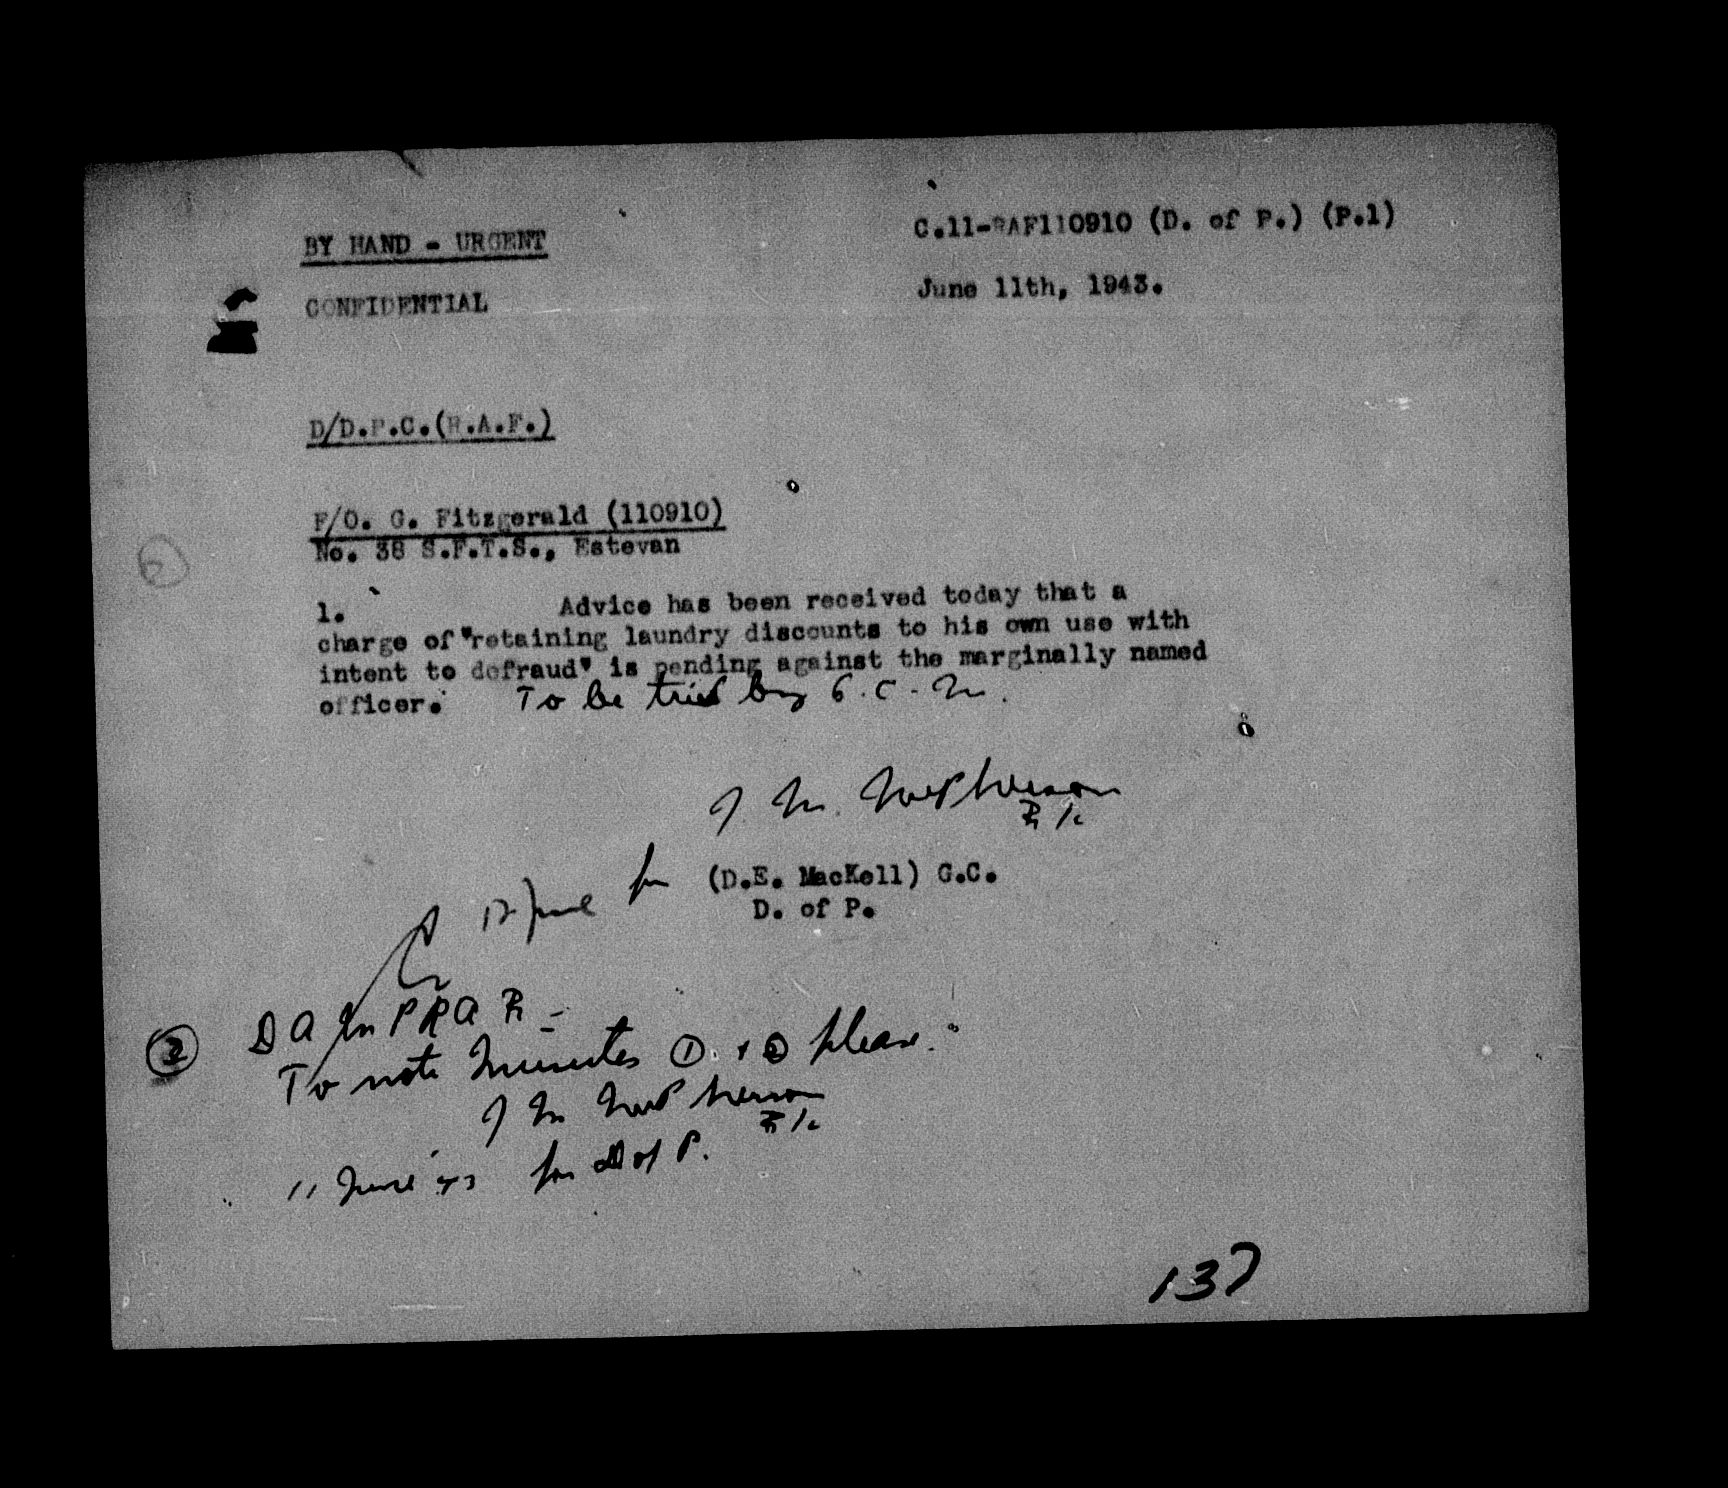 BY HAND - URGENT
C.11-RAF110910 (D. of P.) (P.1)
CONFIDENTIAL
June 11th, 1943.
D/D.P.C.(R.A.F.)
F/O. G. Fitzgerald (110910)
No. 38 S.F.T.S., Estevan
1. Advice has been received today that a
charge of "retaining laundry discounts to his own use with
intent to defraud" is pending against the marginally named
officer. To be tried by G.C.M.
J. M. McPherson
for (D.E. MacKell) G.C.
12/June
D. of P.
② D A
To note Minutes ① + ② please.
J M McPherson
11 June '43 for D of P.
137